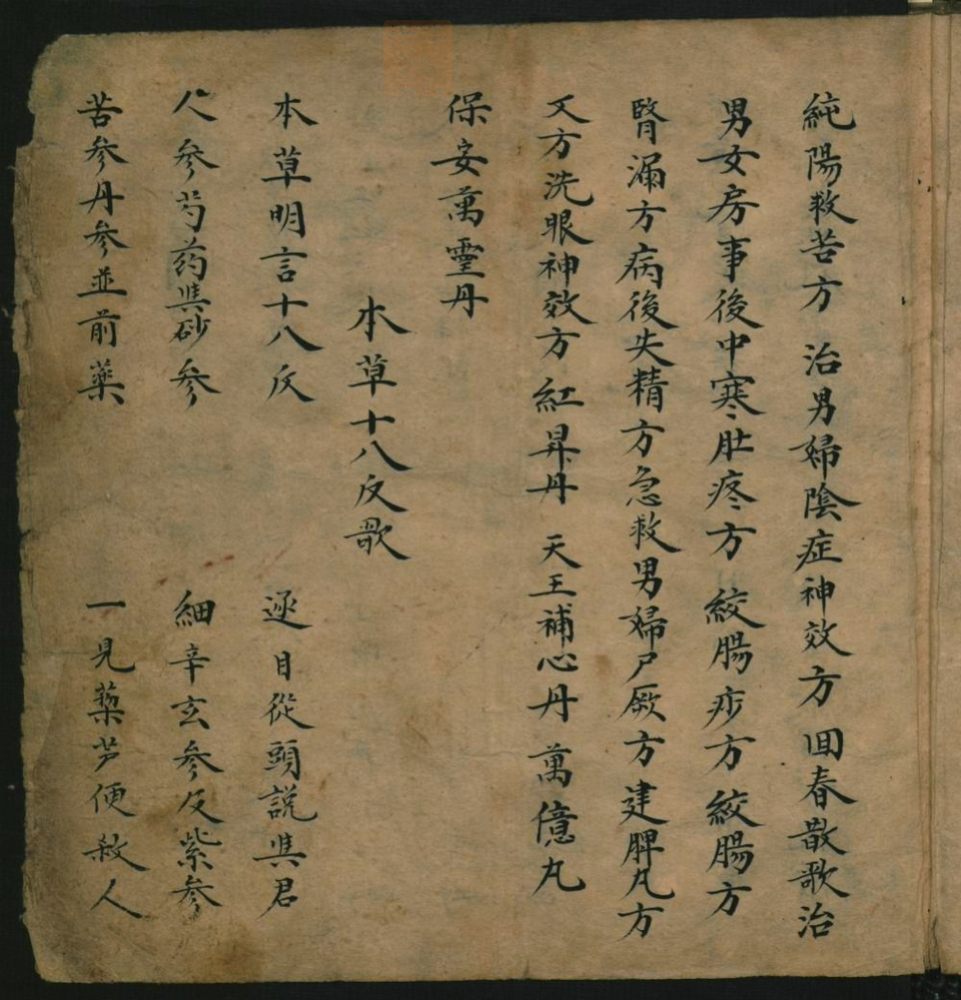 純陽救苦方　治男婦陰症神效方　回春散歌治
男女房事後中寒肚疼方　絞腸痧方　絞腸方
腎漏方病後失精方急救男婦尸厥方建脾丸方
又方洗眼神效方　紅昇丹　天王補心丹　萬億丸
保安萬靈丹
本草十八反歌
本草明言十八反　逐目從頭說與君
人參芍药與砂參　細辛玄參反紫參
苦參丹參並前藥　一見藜芦便殺人